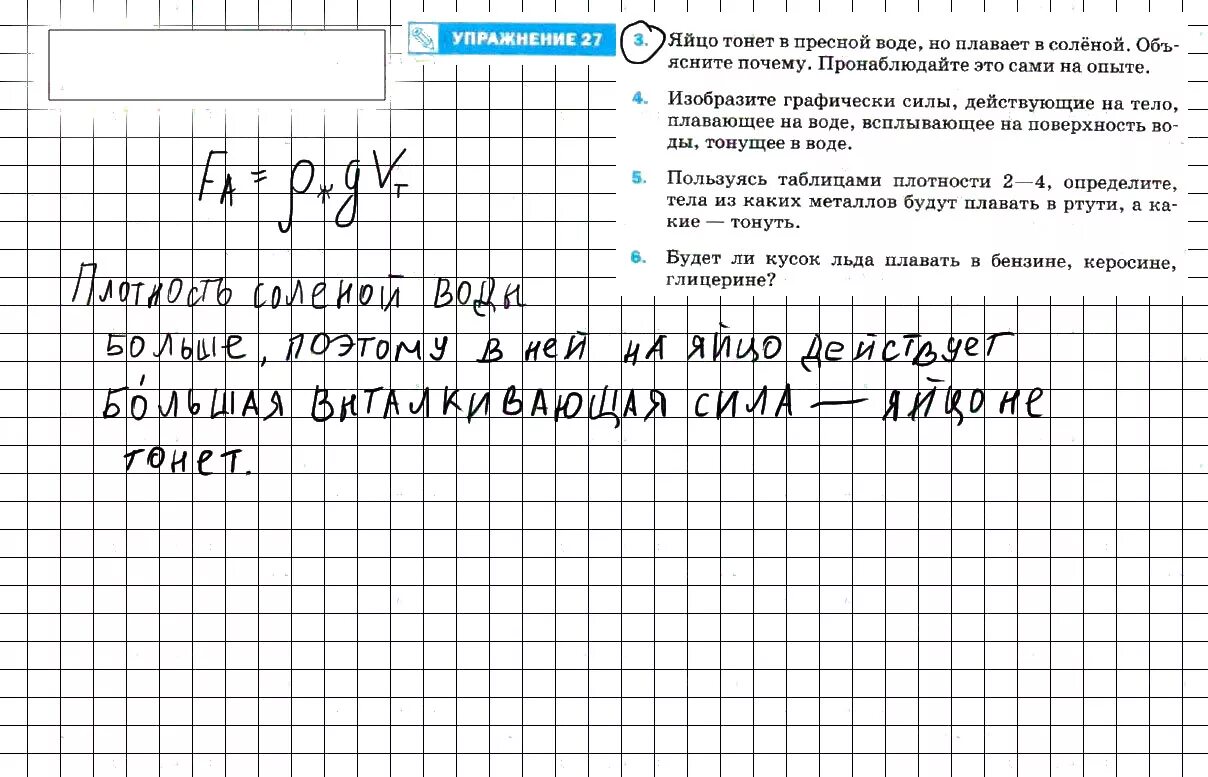 УПРАЖНЕНИЕ 27
3. Яйцо тонет в пресной воде, но плавает в солёной. Объ-
ясните почему. Пронаблюдайте это сами на опыте.
4. Изобразите графически силы, действующие на тело,
плавающее на воде, всплывающее на поверхность во-
ды, тонущее в воде.
5. Пользуясь таблицами плотности 2—4, определите,
тела из каких металлов будут плавать в ртути, а ка-
кие — тонуть.
6. Будет ли кусок льда плавать в бензине, керосине,
глицерине?
Fₐ = ρж g Vт
Плотность соленой воды
больше, поэтому в ней на яйцо действует
бо́льшая выталкивающая сила — яйцо не
тонет.